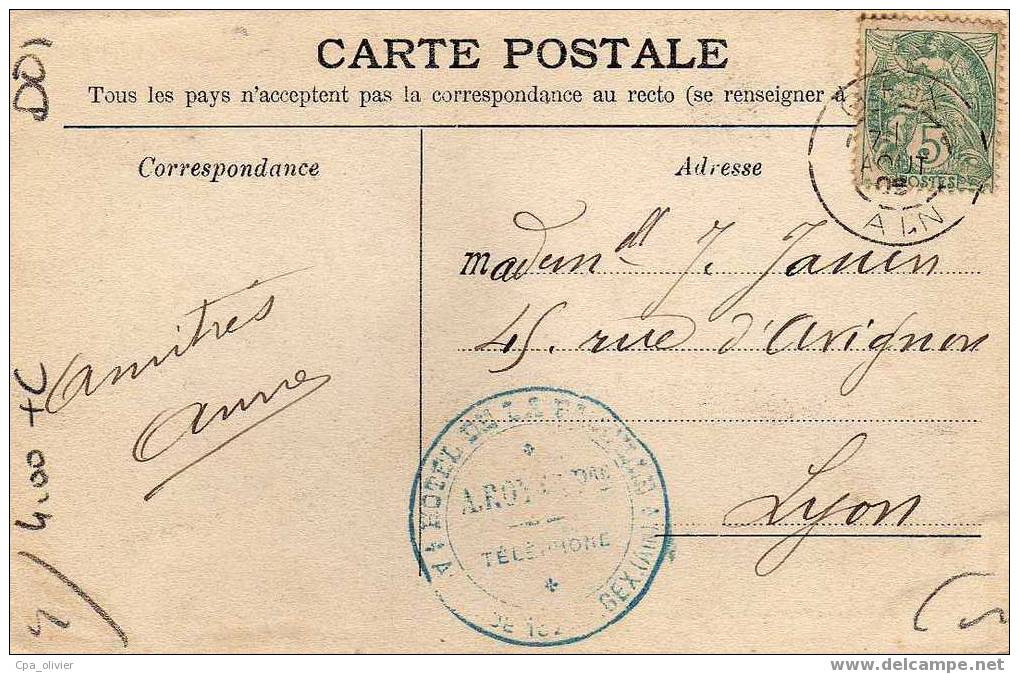 CARTE POSTALE
Tous les pays n'acceptent pas la correspondance au recto (se renseigner à
Correspondance
Adresse
5
POSTES
AOUT
AIN
madem^lle J. Janin
45. rue d'Avignon
Lyon
amitiés
anna
HOTEL DE LA FAUCILLE
GEX (AIN)
A. ROY
TÉLÉPHONE
4.00 + C
Cpa_olivier
www.delcampe.net